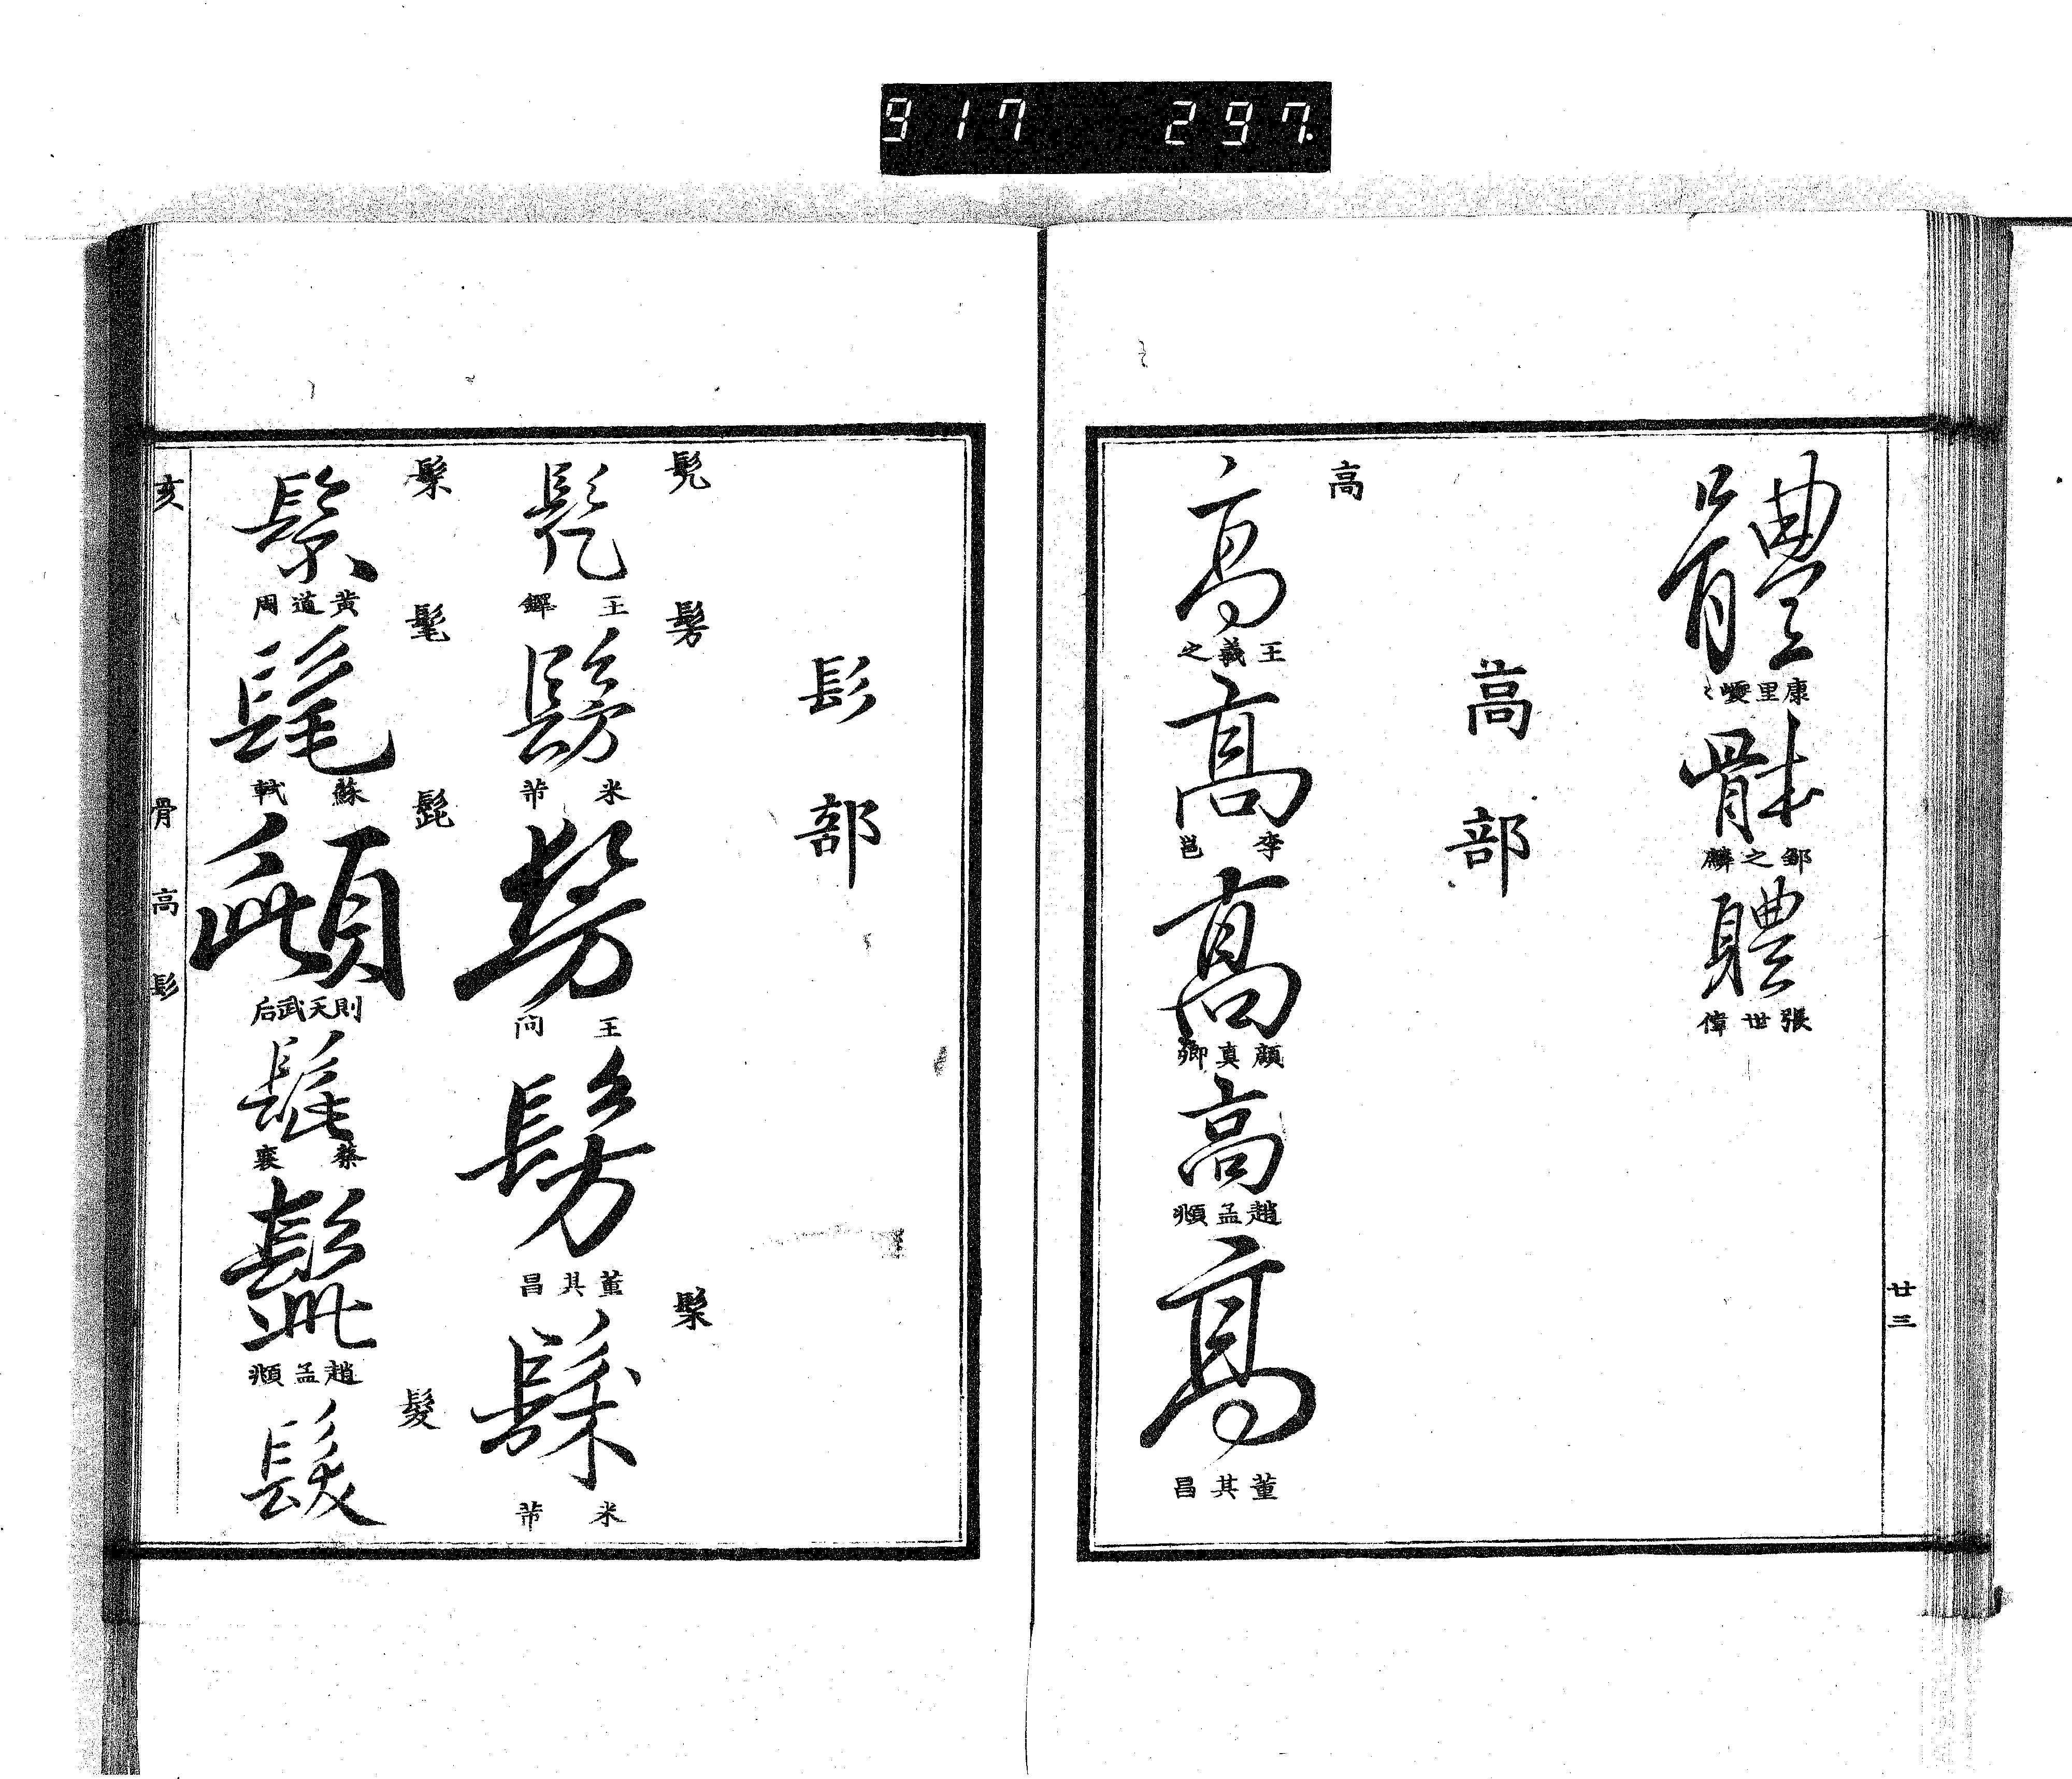 917 297.
體
康里巎〻
骵
鄒之麟
軆
張世偉
高部
高
高
王羲之
高
李邕
高
顏真卿
高
趙孟頫
高
董其昌
廿三
髟部
髠
髠
王鐸
髣
髣
米芾
髣
王問
髣
董其昌
髹
髹
米芾
髤
黃道周
髦
髦
蘇軾
髭
則天武后
髭
蔡襄
髭
趙孟頫
髮
髮
亥
骨
高
髟